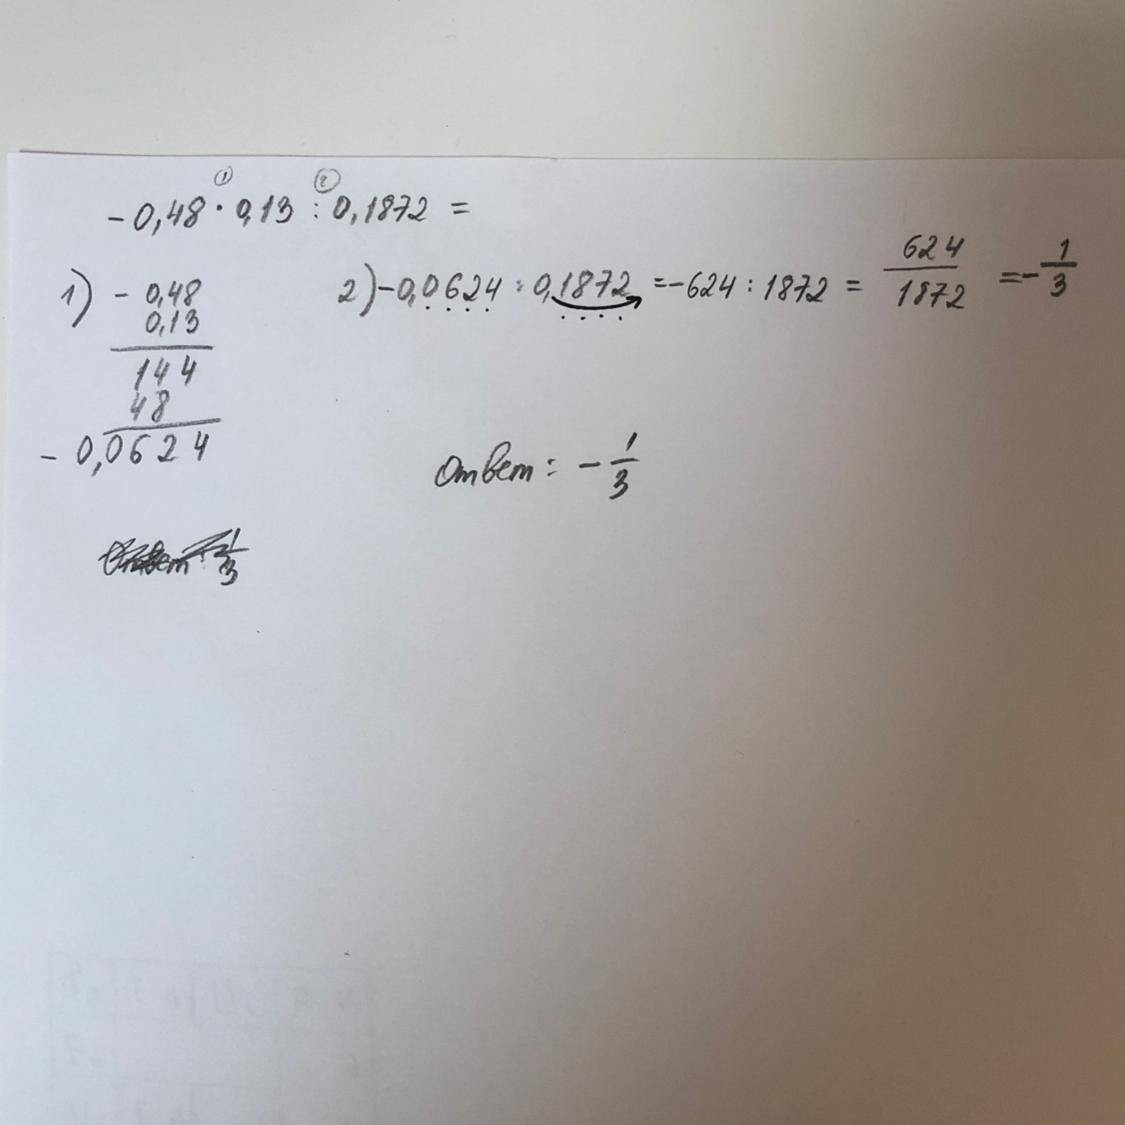 ① ②
-0,48 · 0,13 : 0,1872 =
1) - 0,48
0,13
144
48
- 0,0624
2) -0,0624 : 0,1872 = -624 : 1872 = 624/1872 = -1/3
Ответ: -1/3
Ответ: 1/3